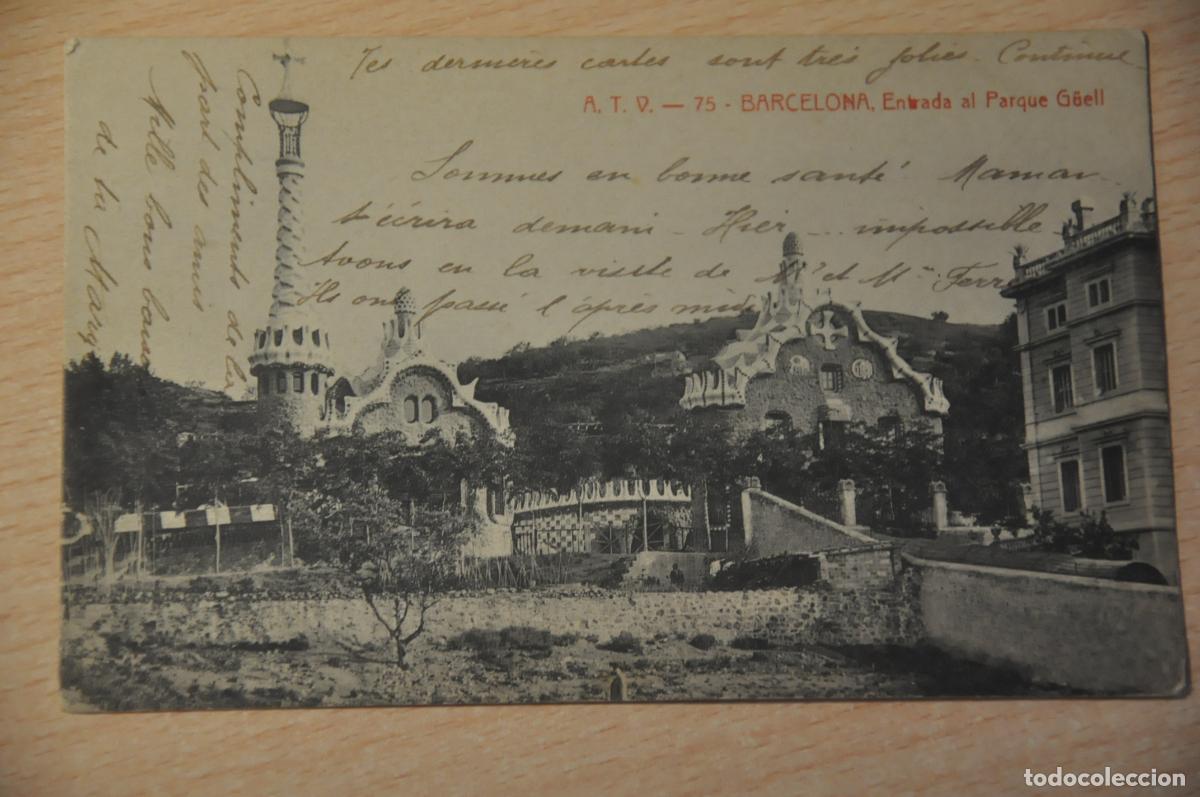 Tes dermères cartes sont très jolies. Continue
A. T. V. — 75 - BARCELONA, Entrada al Parque Güell
Sommes en bonne santé. Maman
t'écrira demani. Hier impossible
Avons en la visite de Mr et Me Ferr
Ils ont passé l'après midi
Compliments de la
part des amis
Mille bons baisers
de ta Mary
todocoleccion